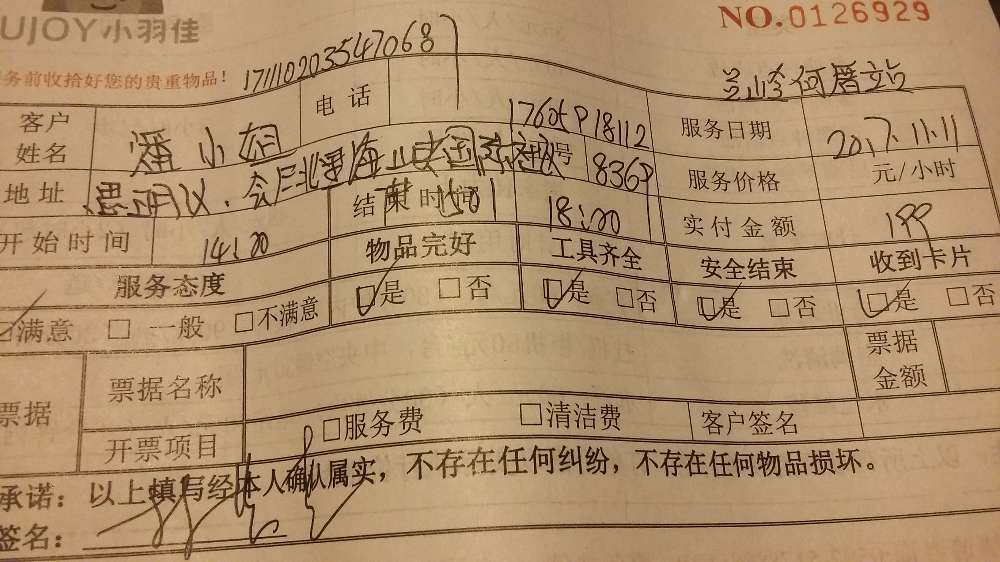 UJOY小羽佳
NO.0126929
务前收拾好您的贵重物品!
171110203547068
客户姓名 潘小姐 电话 服务日期 2017.11.11
地址 服务价格 元/小时
8369
开始时间 14:00 结束时间 18:00 实付金额 199
服务态度 物品完好 工具齐全 安全结束 收到卡片
满意 □ 一般 □不满意 □是 □否 □是 □否 □是 □否 □是 □否
票据 票据名称 票据金额
开票项目 □服务费 □清洁费 客户签名
承诺:以上填写经本人确认属实,不存在任何纠纷,不存在任何物品损坏。
签名: